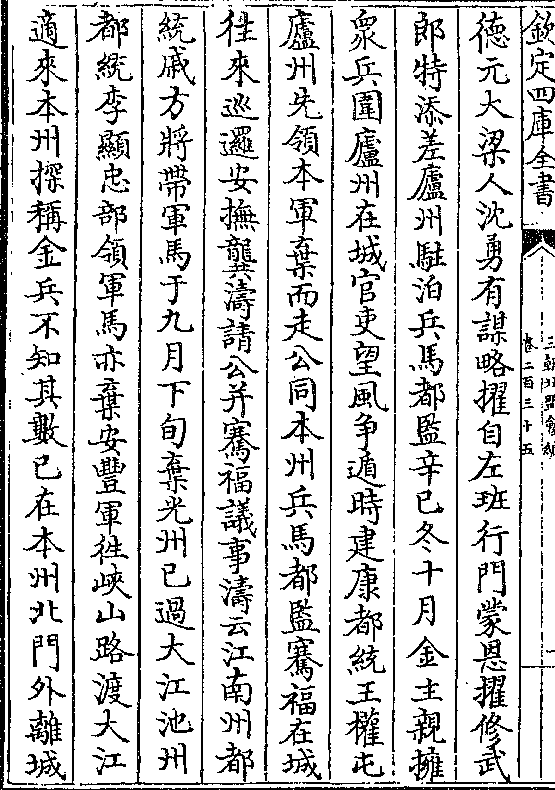 欽定四庫全書
三朝北盟會編
卷二百三十五
德元大梁人沈勇有謀略擢自左班行門蒙恩擢修武
郎特添差廬州駐泊兵馬都監辛巳冬十月金主親擁
衆兵圍廬州在城官吏望風争遁時建康都統王權屯
廬州先領本軍棄而走公同本州兵馬都監騫福在城
徃來巡邏安撫龔濤請公并騫福議事濤云江南州都
統戚方將帶軍馬于九月下旬棄光州已過大江池州
都統李顯忠部領軍馬亦棄安豐軍徃峽山路渡大江
適來本州探稱金兵不知其數已在本州北門外離城